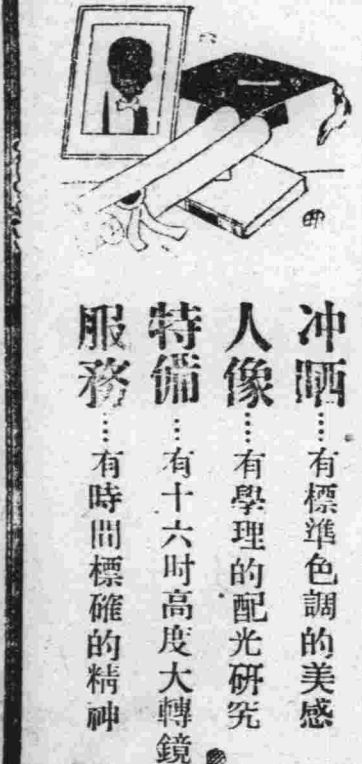 冲晒……有標準色調的美感
人像……有學理的配光研究
特備……有十六吋高度大轉鏡
服務……有時間標確的精神